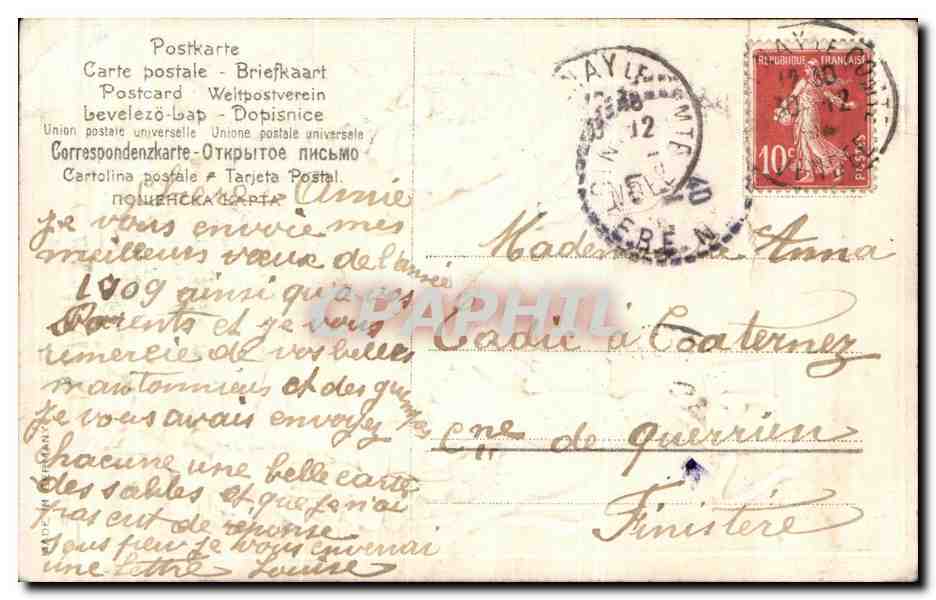 Postkarte
Carte postale - Briefkaart
Postcard Weltpostverein
Levelező-Lap - Dopisnice
Union postale universelle Unione postale universale
Correspondenzkarte - Открытое письмо
Cartolina postale Tarjeta Postal.
ПОЩЕНСКА КАРТА
Chere Amie
Je vous envoie mes
meilleurs vœux de l'année
1909 ainsi qu'a vos
Parents et je vous
remercie de vos belles
et des
Je vous avais envoyez
chacune une belle carte
des sables et que je n'ai
pas eut de reponse
sous peu je vous enverrai
une lettre Louise
MADE IN GERMANY
REPUBLIQUE FRANÇAISE
10c
POSTES
NAY LE COMTE
12
Mademoiselle Anna
Cadic à Coaternez
Cne de querrien
Finistère
CPAPHIL